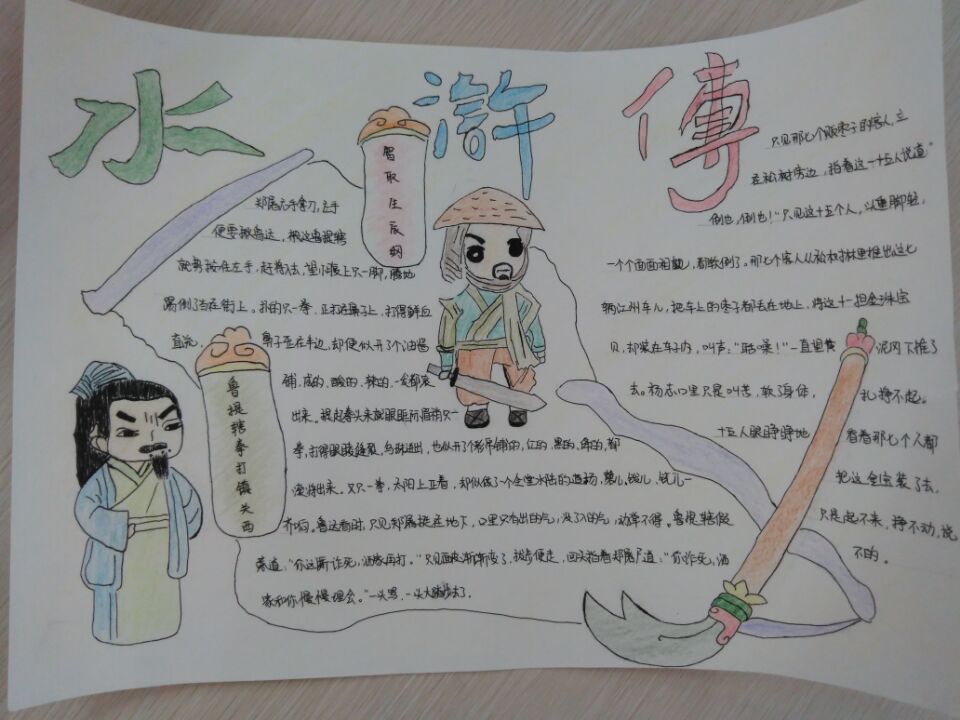 水滸傳
智取庄辰纲
郑屠右手拿刀,左手
便要揪鲁达,被这鲁提辖
就势按住左手,赶将入去,望小腹上只一脚,腾地
踢倒了当在街上。扑的只一拳,正打在鼻子上,打得鲜血
直流,鼻子歪在半边,却便似开了个油酱
铺,咸的、酸的、辣的,一发都滚
出来。提起拳头来就眼眶际眉梢只一
拳,打得眼缝裂,乌珠迸出,也似开了个彩帛铺的,红的、黑的、绛的,都
滚将出来。又只一拳,太阳上正着,却似做了个全堂水陆的道场,磬儿、钹儿、铙儿一
齐响。鲁达看时,只见郑屠挺在地下,口里只有出的气,没了入的气,动掸不得。鲁提辖假
意道:"你这厮诈死,洒家再打。"只见面皮渐渐变了,拔步便走,回头指着郑屠尸道:"你诈死,洒
家和你慢慢理会。"一头骂,一头大踏步去了.
鲁提辖拳打镇关西
只见那七个贩枣子的客人,立
在松树旁边,指着这一十五人说道"
倒也,倒也!"只见这十五个人,头重脚轻,
一个个面面相觑,都软倒了。那七个客人从松树林里推出这七
辆江州车儿,把车上的枣子都丢在地上,将这十一担金珠宝
贝,却装在车子内,叫声:"聒噪!"一直望黄泥冈下推了
去。杨志口里只是叫苦,软了身体,扎挣不起。
十五人眼睁睁地看着那七个人都
把这金宝装了去,
只是起不来、挣不动,说
不的。